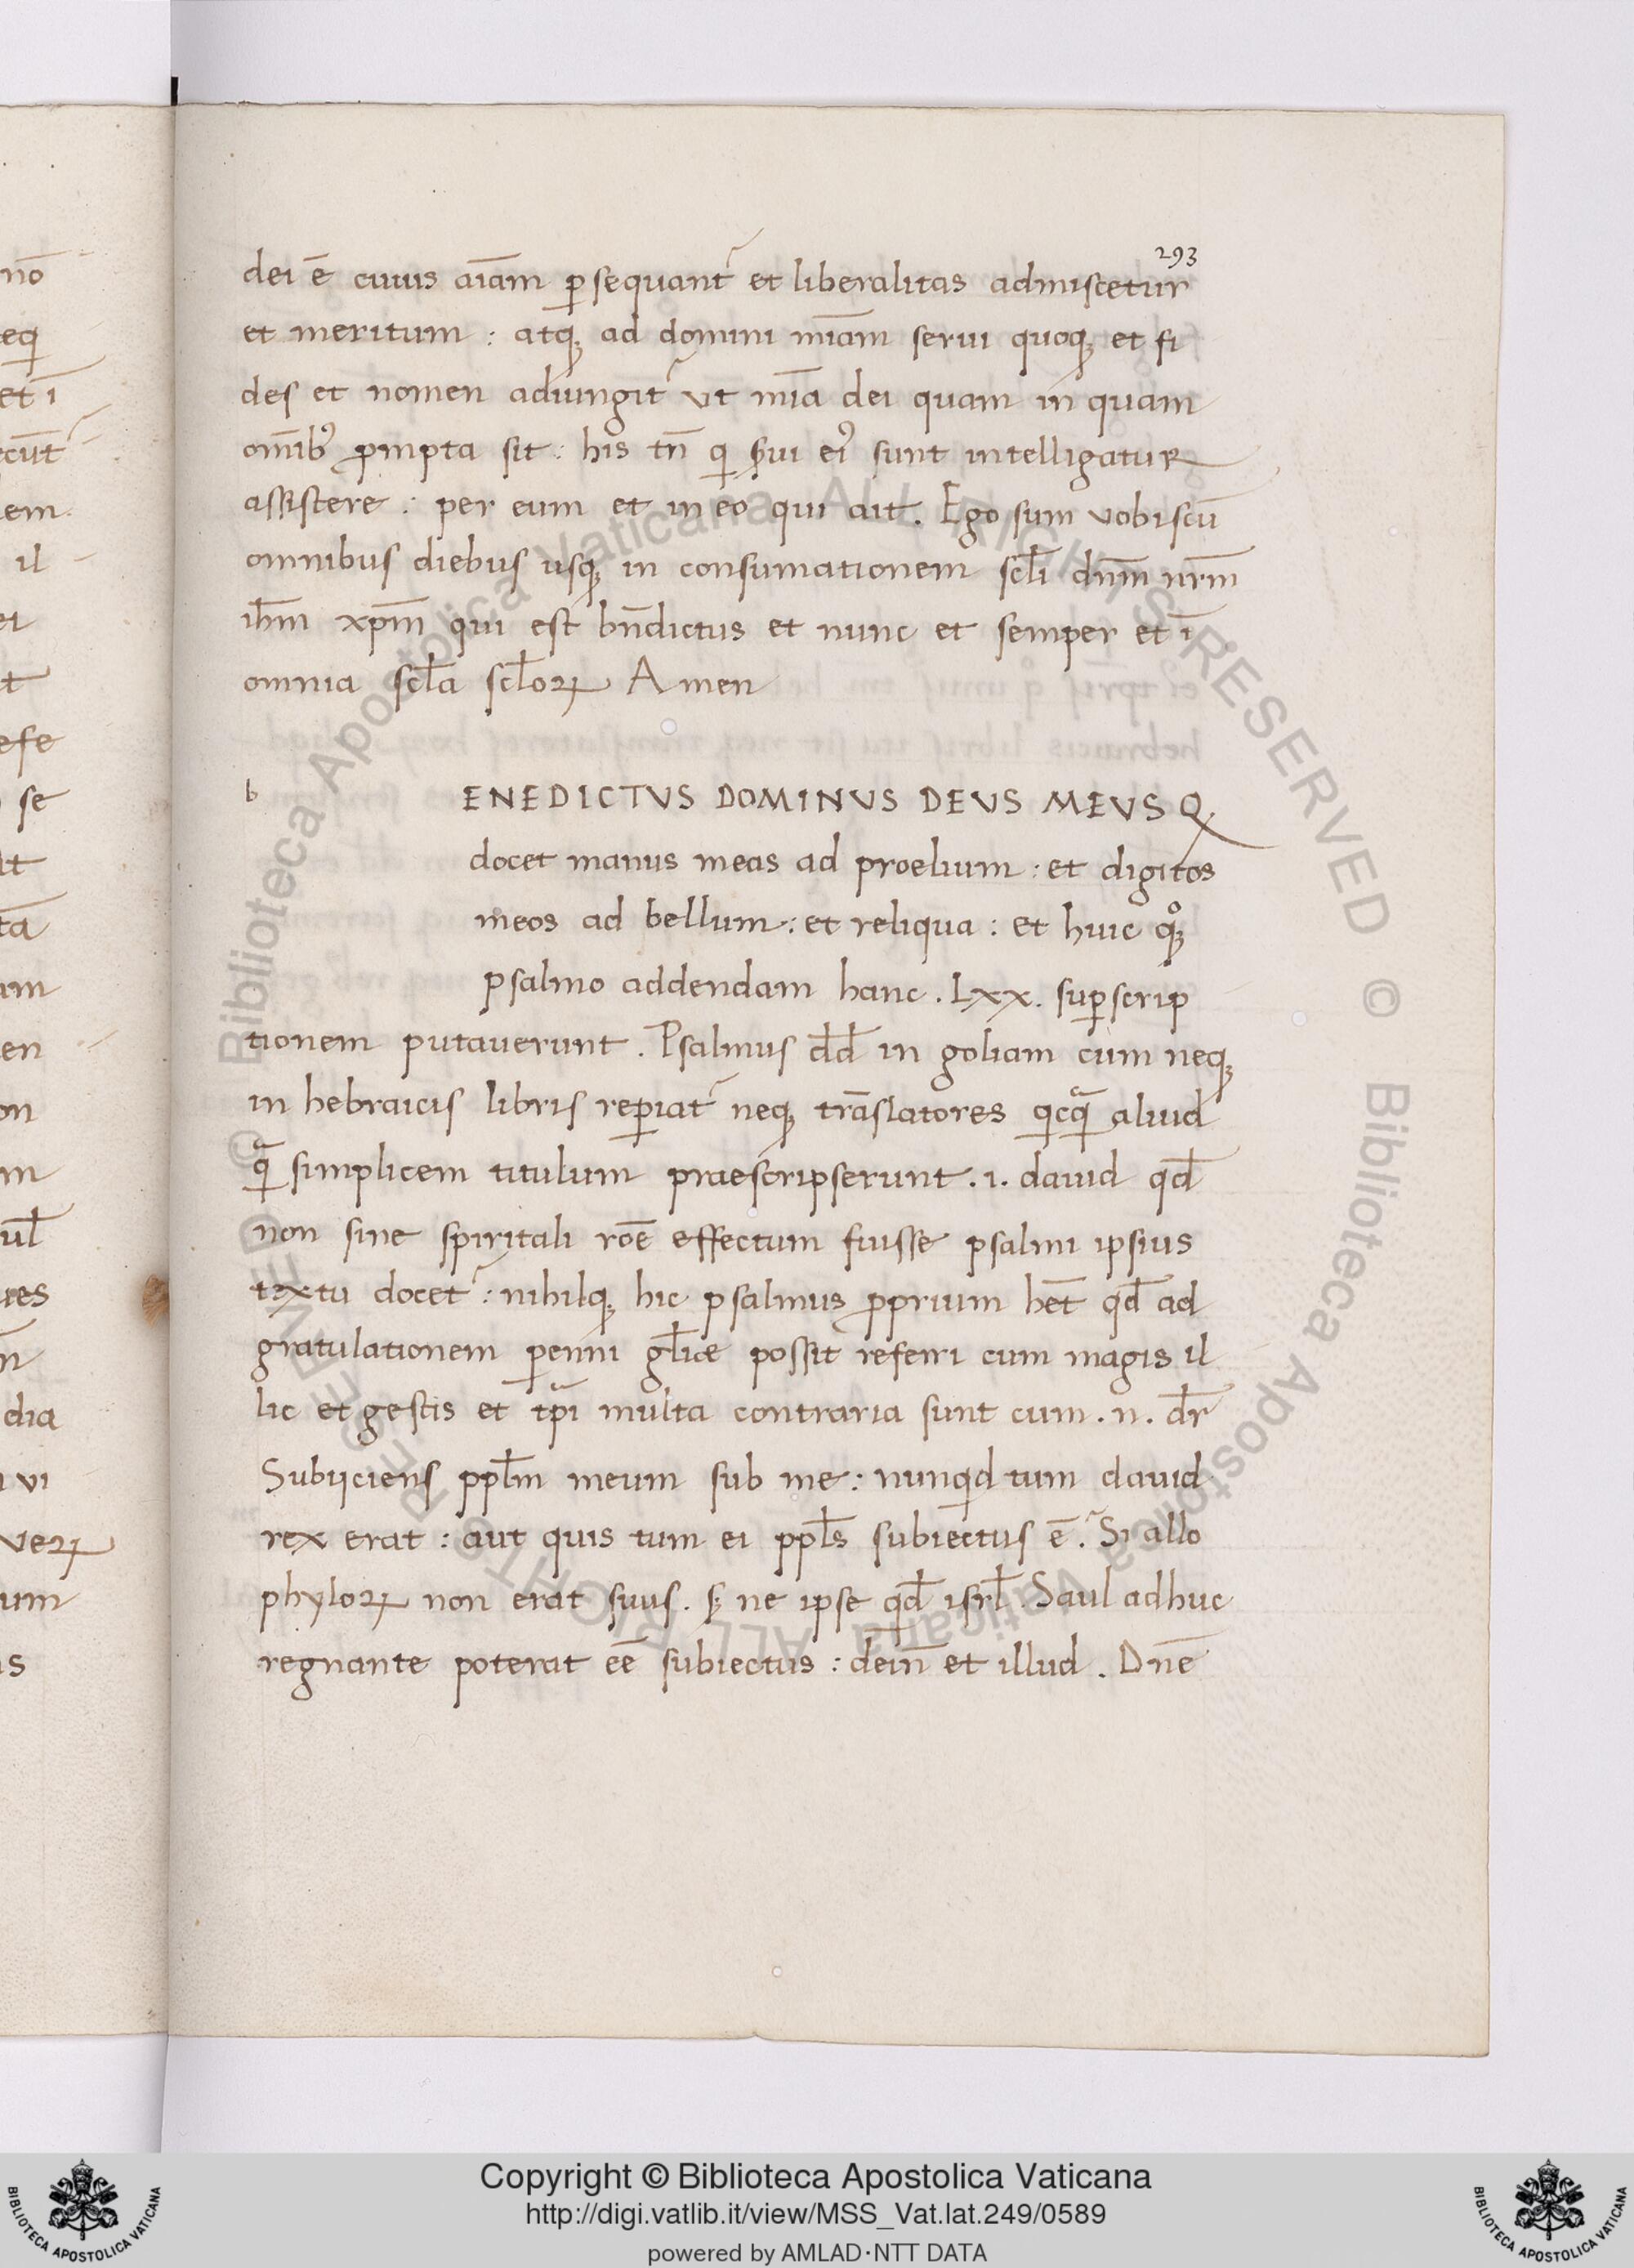 293
dei ē cuius aīam ꝑsequant᷑ et liberalitas admiscetur
et meritum : atqꝫ ad domini mīam serui quoqꝫ et fi
des et nomen adiungit᷑ ut mīa dei quam in quam
om̄ibꝰ ꝓmpta sit : his tn̄ q̣ ꝓui eiꝰ sunt intelligatur
assistere : per eum et in eo qui ait . Ego sum vobiscū
omnibus diebus usqꝫ in consumationem scl̄i dn̄m nr̄m
ih̄m xp̄m qui est bn̄dictus et nunc et semper et ī
omnia scl̄a scl̄oꝝ Amen
b ENEDICTVS DOMINVS DEVS MEVS Q
docet manus meas ad proelium : et digitos
meos ad bellum : et reliqua : et huic qͦꝫ
psalmo addendam hanc . Lxx . suꝑscrip
tionem putauerunt . Psalmus dd̄ in goliam cum neqꝫ
in hebraicis libris reꝑiat᷑ neqꝫ trāslatores qicꝗᷓ aliud
ꝗᷓ simplicem titulum praescripserunt . i . dauid qd̄
non sine spiritali roē effectum fuisse psalmi ipsius
textu docet᷑ : nihilqꝫ hic psalmus ꝓprium het̄ qd̄ ad
gratulationem ꝑenni gl̄iae possit referri cum magis il
lic et gestis et tp̄i multa contraria sunt cum . n . dr̄
Subijciens ppl̄m meum sub me : nunqid tum dauid
rex erat : aut quis tum ei ppl̄s subiectus ē . Si allo
phyloꝝ non erat suus . sꝫ ne ipse qd̄ isrl̄ . Saul adhuc
regnante poterat eē subiectus : dein̄ et illud . Dnē
nō
eq
et ī
ecūt᷑
em
il
et
t
efe
se
tā
am
en
on
m
ul̄
res
n̄
dia
vi
veꝝ
um
is
Copyright © Biblioteca Apostolica Vaticana
http://digi.vatlib.it/view/MSS_Vat.lat.249/0589
powered by AMLAD·NTT DATA
BIBLIOTECA APOSTOLICA VATICANA
BIBLIOTECA APOSTOLICA VATICANA